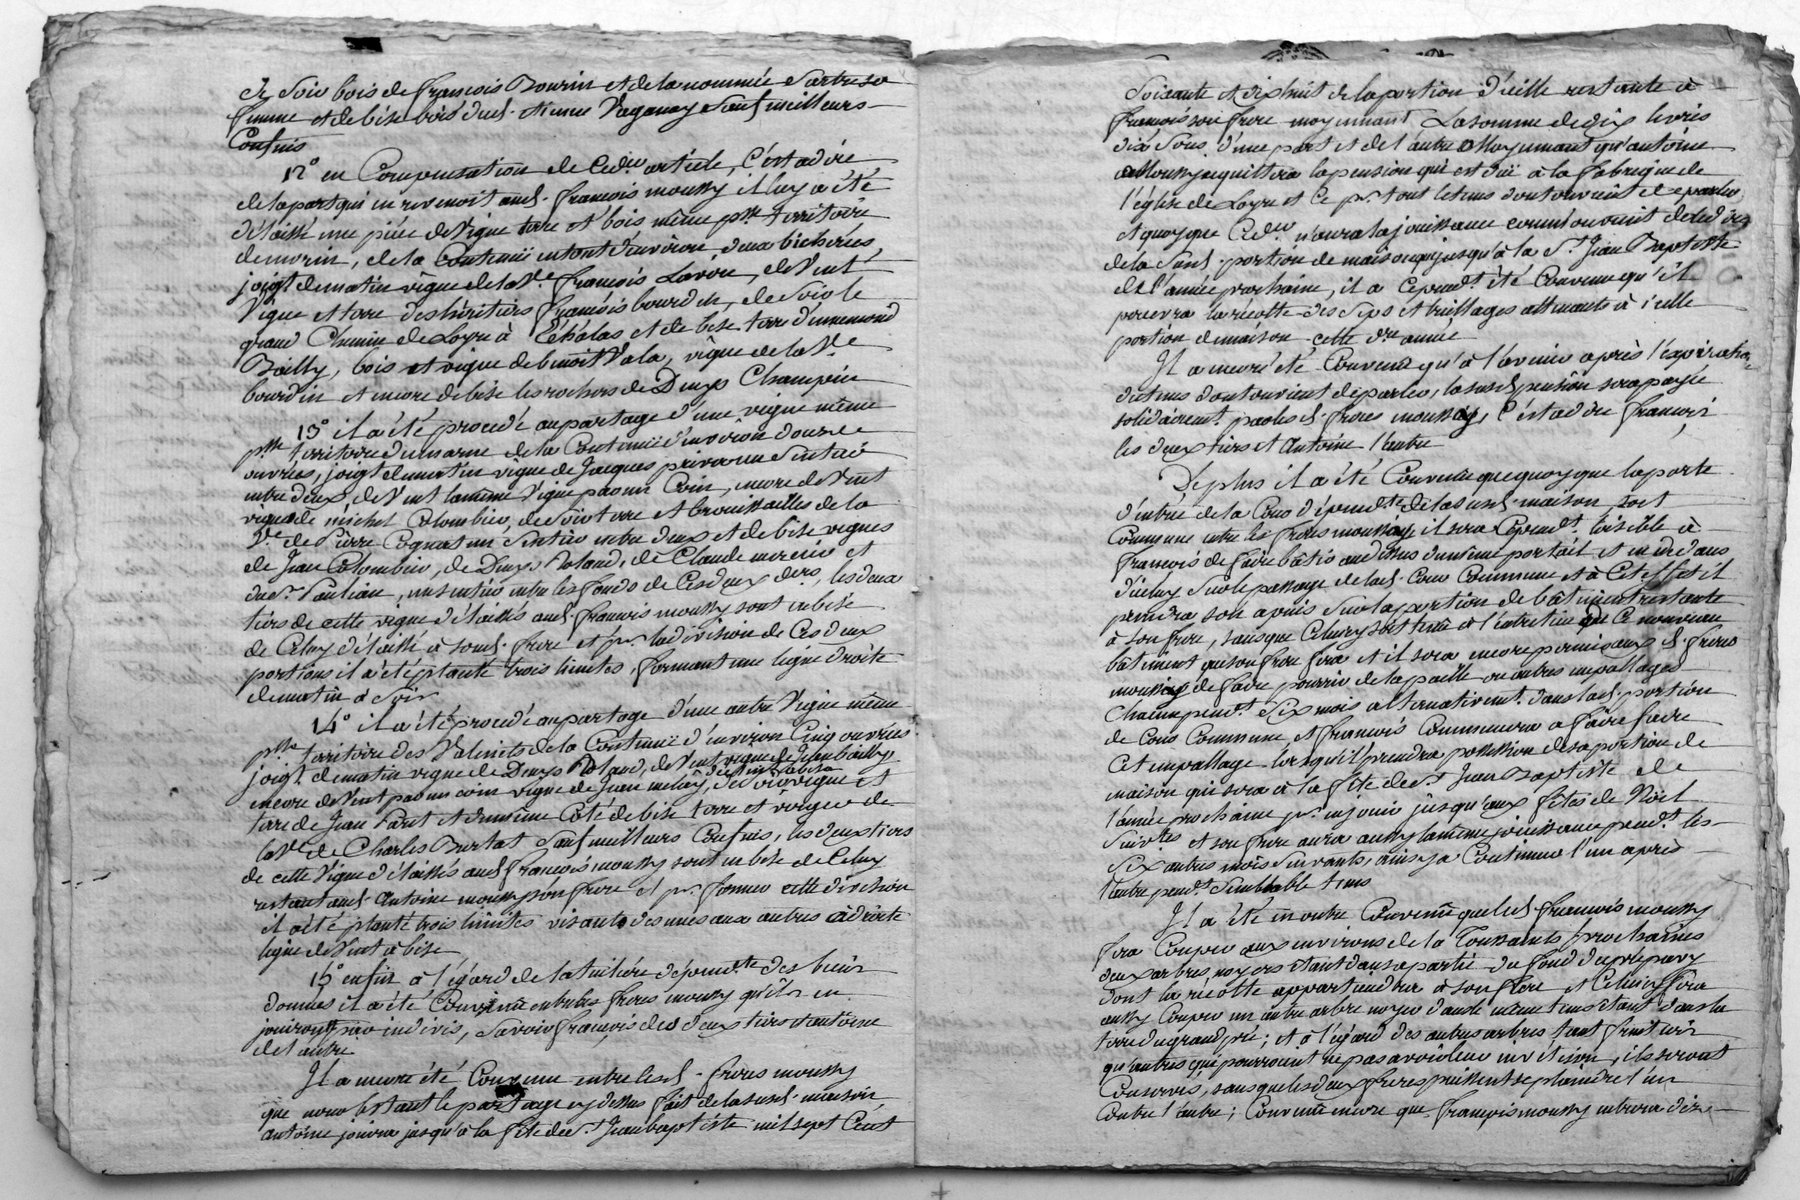 de Soir bois de françois Bourin et de la nommée sa
femme et de bise bois dud. Etienne Vaganay sauf meilleurs
Confins
12° en Compensation de Ce d.er article, C'est a dire
de la part qui en revenoit aud. françois moussy il luy a été
délaissé une pièce de Vigne terre et bois même p.sse territoire
de morin, de la Contenuë en tout d'environ deux bicherées,
joig.t de matin vigne de la V.e françois Lavoir, de Vent
Vigne et terre des héritiers françois bourdin, de Soir le
grand Chemin de Loyre à Echalas et de bise terre d'ennemond
Bailly, bois et vigne de benoit Vala, vigne de la V.e
bourdin et encore de bise les rochers de Denys Champin
13° il a été procedé au partage d'une vigne même
p.sse territoire du marne de la Contenuë d'environ douze
ouvrées, joig.t de matin vigne de Jacques un Sentier
entre deux, de Vent la même Vigne par un Coin, encore de Vent
vigne de michel Colombier, de Soir terre et brouissailles de la
V.e de Pierre Cognat un Sentier entre deux et de bise vignes
de Jean Colombier, de Denys Roland, de Claude mercier et
du s.r Paulian, un sentier entre les fonds de Ces deux d.ers, les deux
tiers de cette vigne délaissés aud. françois moussy sont en bise
de Celuy délaissé à sond. frere et p.r la division de Ces deux
portions il a été planté trois limites formant une ligne droite
de matin à Soir
14° il a été procedé au partage d'une autre Vigne même
p.sse territoire des Valencets de la Contenuë d'environ Cinq ouvrées
joig.t de matin vigne de Denys Roland, de Vent vigne de Jean bailly
encore de Vent par un coin vigne de Jean de Soir vigne et
terre de Jean Paret et d'un même Coté de bise terre et verger de
la V.e de Charles Burlat sauf meilleurs Confins, les deux tiers
de cette Vigne délaissés aud. françois moussy sont en bise de Celuy
restant aud. antoine moussy son frere et p.r former cette division
il a été planté trois limites visants des unes aux autres à droite
ligne de Vent à bise
15° enfin à l'égard de la tuiliere dépend.te des biens
donnés il a été Convenu entre les freres moussy qu'ils en
jouiront par indivis, Savoir françois des deux tiers et antoine
de l'autre
Il a encore été Convenu entre lesd. freres moussy
que nonobstant le partage cy dessus fait de la susd. maison
antoine jouira jusqu'à la fête de S.t Jean baptiste mil sept Cent
Soixante et dix huit de la portion d'icelle restante à
françois son frere moyennant La somme de dix livres
dix Sous d'une part et de l'autre Moyennant qu'antoine
Moussy aquittera la pension qui est duë à la fabrique de
l'église de Loyre et Ce p.r tout le tems dont on vient de parler
et quoyque Ced.er n'aura la jouissance comme on vient de le dire
de la susd. portion de maison que jusqu'à la S.t Jean Baptiste
de l'année prochaine, il a Cepend.t été Convenu qu'il
percevra la récolte des seps et treillages attenants à icelle
portion de maison cette d.re année
Il a encore été Convenu qu'à l'avenir après l'expiration
du tems dont on vient de parler, la susd. pension sera payée
solidairement par lesd. freres moussy, C'est a dire françois
les deux tiers et Antoine l'autre
De plus il a été Convenu que quoyque la porte
d'entrée de la Cour dépend.te de la susd. maison soit
Commune entre les freres moussy, il sera Cepend.t loisible à
françois de faire bâtir au dessus dun même portail et en dedans
d'iceluy sur le passage de lad. Cour Commune et à Cet effet il
prendra son apuis Sur la portion de bâtiment restante
à son frere, sans que Celuy cy soit tenu à l'entretien que Ce nouveau
bâtiment que son frere fera et il sera encore permis aux d. freres
moussy de faire pourrir de la paille ou autres empaillages
Chacun pend.t Six mois alternativem.t dans lad. portion
de Cour Commune et françois Commencera a faire faire
Cet empaillage lorsqu'il prendra possession de sa portion de
maison qui sera à la fête de S.t Jean Baptiste de
l'année prochaine p.r en jouir jusqu'aux fêtes de Noël
Suiv.tes et son frere aura aussy la même jouissance pend.t les
Six autres mois Suivants, ainsy a Continuer l'un après
l'autre pend.t Semblable tems
Il a été en outre Convenu que led. françois moussy
fera Couper aux environs de la Toussaints prochaines
deux arbres noyers étant dans sa partie du fond du
dont la récolte appartiendra à son frere et Celui cy fera
aussy Couper un autre arbre noyer dans le même tems étant dans la
terre du grand pré; et à l'égard des autres arbres tant fruitiers
qu'autres que pourroient ne pas avoir leur, ils seront
Conservés, sans que les deux freres puissent se plaindre l'un
Contre l'autre; Convenu encore que françois moussy entrera dès